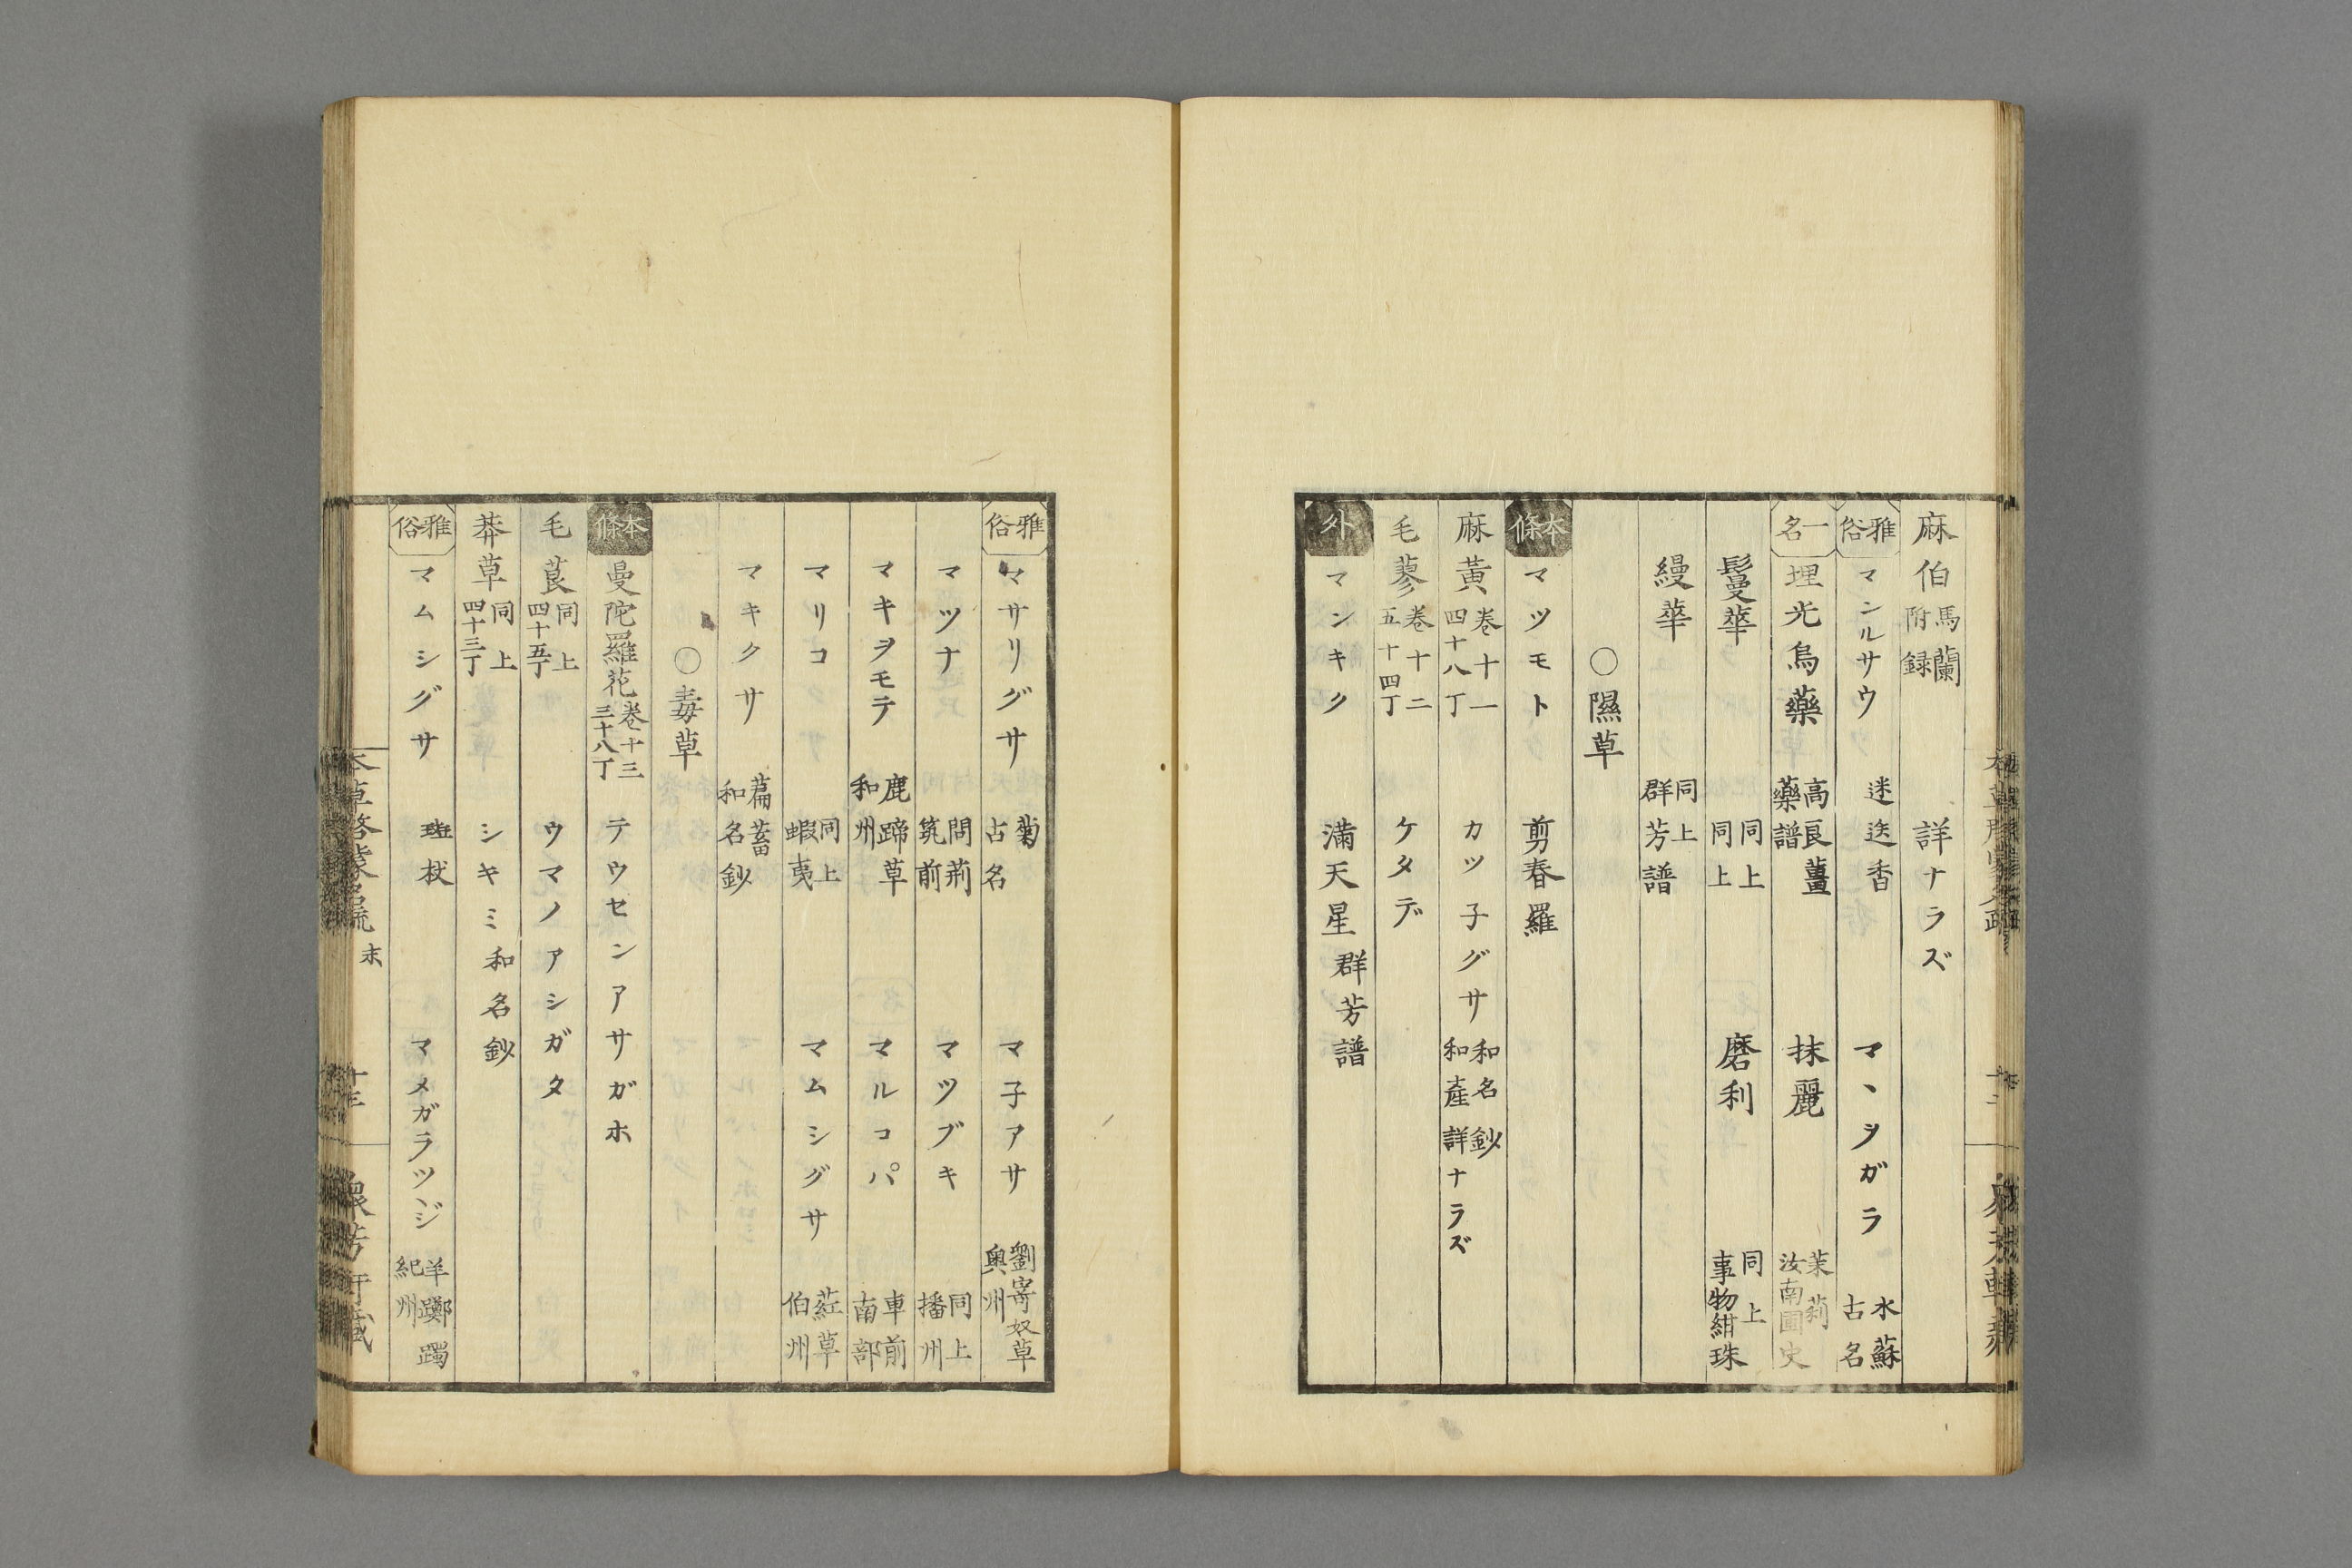 麻伯 馬蘭附録 詳ナラズ
雅俗 マンルサウ 迷迭香 マヽヲガラ 水蘇 古名
一名 埋光烏藥 高良薑 藥譜 抹麗 茉莉 汝南圃史
鬘華 同上 同上 磨利 同上 事物紺珠
縵華 同上 群芳譜
〇隰草
本條 マツモト 剪春羅
麻黃 卷十一 四十八丁 カツ子グサ 和名鈔 和產詳ナラズ
毛蓼 卷十二 五十四丁 ケタデ
外 マンキク 滿天星 群芳譜
雅俗 マサリグサ 菊 古名 マ子アサ 劉寄奴草 奥州
マツナ 閭荊 筑前 マツブキ 同上 播州
マキヲモテ 鹿蹄草 和州 マルコパ 車前 南部
マリコ 同上 蝦夷 マムシグサ 葒草 伯州
マキクサ 萹蓄 和名鈔
〇毒草
本條 曼陀羅花 卷十三 三十八丁 テウセンアサガホ
毛茛 同上 四十五丁 ウマノアシガタ
莽草 同上 四十三丁 シキミ 和名鈔
雅俗 マムシグサ 斑杖 マメガラツヽジ 羊躑躅 紀州
本草啓蒙名疏 末 十三 衆芳軒藏